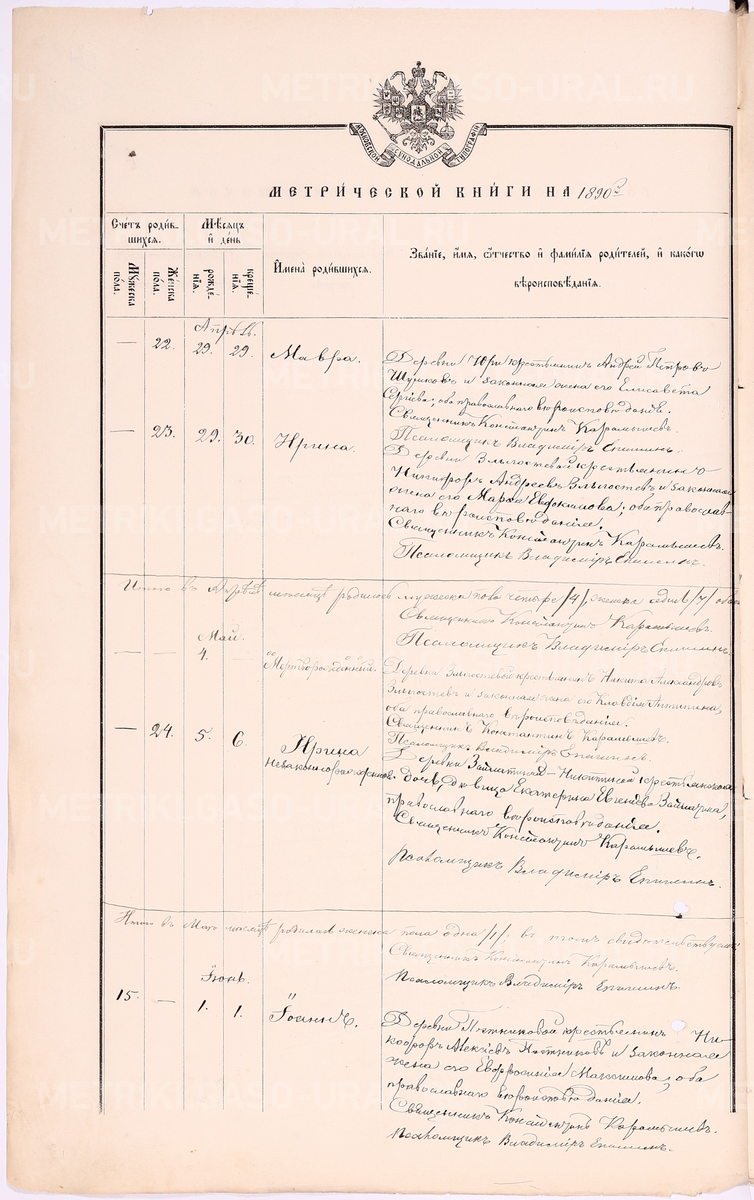 МОСКОВСКОЙ СѴНОДАЛЬНОЙ ТИПОГРАФІИ
МЕТРИ́ЧЕСКОЙ КНИ́ГИ НА 1890 г.
Сче́тъ роди́в-
шихся.
Мѣ́сяцъ
и҆ де́нь
И҆мена̀ роди́вшихся.
Зва́нїе, и҆́мя, ѻ҆́тчество и҆ фами́лїя роди́телей, и҆ како́гѡ
вѣроисповѣ́данїя.
Мꙋ́жеска
по́ла.
Же́нска
по́ла.
рожде́-
нїя.
креще́-
нїя.
Апрѣль.
— 22. 29. 29. Мавра.
Деревни крестьянинъ Андрей Петровъ
Шуриковъ и законная жена его Елисавета
оба православнаго вѣроисповѣданія.
Священникъ Константинъ Карамышевъ.
Псаломщикъ Владиміръ Епишинъ.
— 23. 29. 30. Ирина.
Деревни Злыгостевой крестьянинъ
Никифоръ Андреевъ Злыгостевъ и законная
жена его Марѳа Евдокимова; оба православ-
наго вѣроисповѣданія.
Священникъ Константинъ Карамышевъ.
Псаломщикъ Владиміръ Епишинъ.
Итого въ Апрѣлѣ мѣсяцѣ родилось мужеска пола четыре /4/, женска /7/
Священникъ Константинъ Карамышевъ.
Псаломщикъ Владиміръ Епишинъ.
Май.
— — 4. — Мертворожденный.
Деревни Злыгостевой крестьянинъ Никита Александровъ
Злыгостевъ и законная жена его Клавдія Антипина,
оба православнаго вѣроисповѣданія.
Священникъ Константинъ Карамышевъ.
Псаломщикъ Владиміръ Епишинъ.
— 24. 5. 6. Ирина
Незаконнорожденная.
Деревни Займыткиной-Никитиной крестьянская
дочь, дѣвица Екатерина Евгеніева
православнаго вѣроисповѣданія.
Священникъ Константинъ Карамышевъ.
Псаломщикъ Владиміръ Епишинъ.
Итого въ Маѣ мѣсяцѣ родилась женска пола одна /1/; въ томъ свидѣтельствуемъ
Священникъ Константинъ Карамышевъ.
Псаломщикъ Владиміръ Епишинъ.
Іюнь.
15. — 1. 1. Іоаннъ.
Деревни Постниковой крестьянинъ Ни-
Алексѣевъ Постниковъ и законная
жена его Евфросинія Максимова, оба
православнаго вѣроисповѣданія.
Священникъ Константинъ Карамышевъ.
Псаломщикъ Владиміръ Епишинъ.